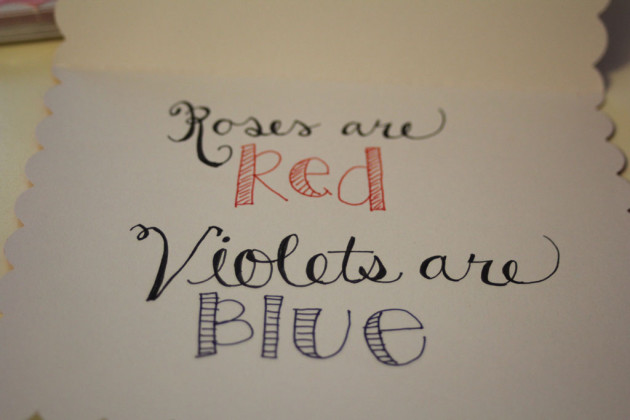 Roses are
Red
Violets are
Blue